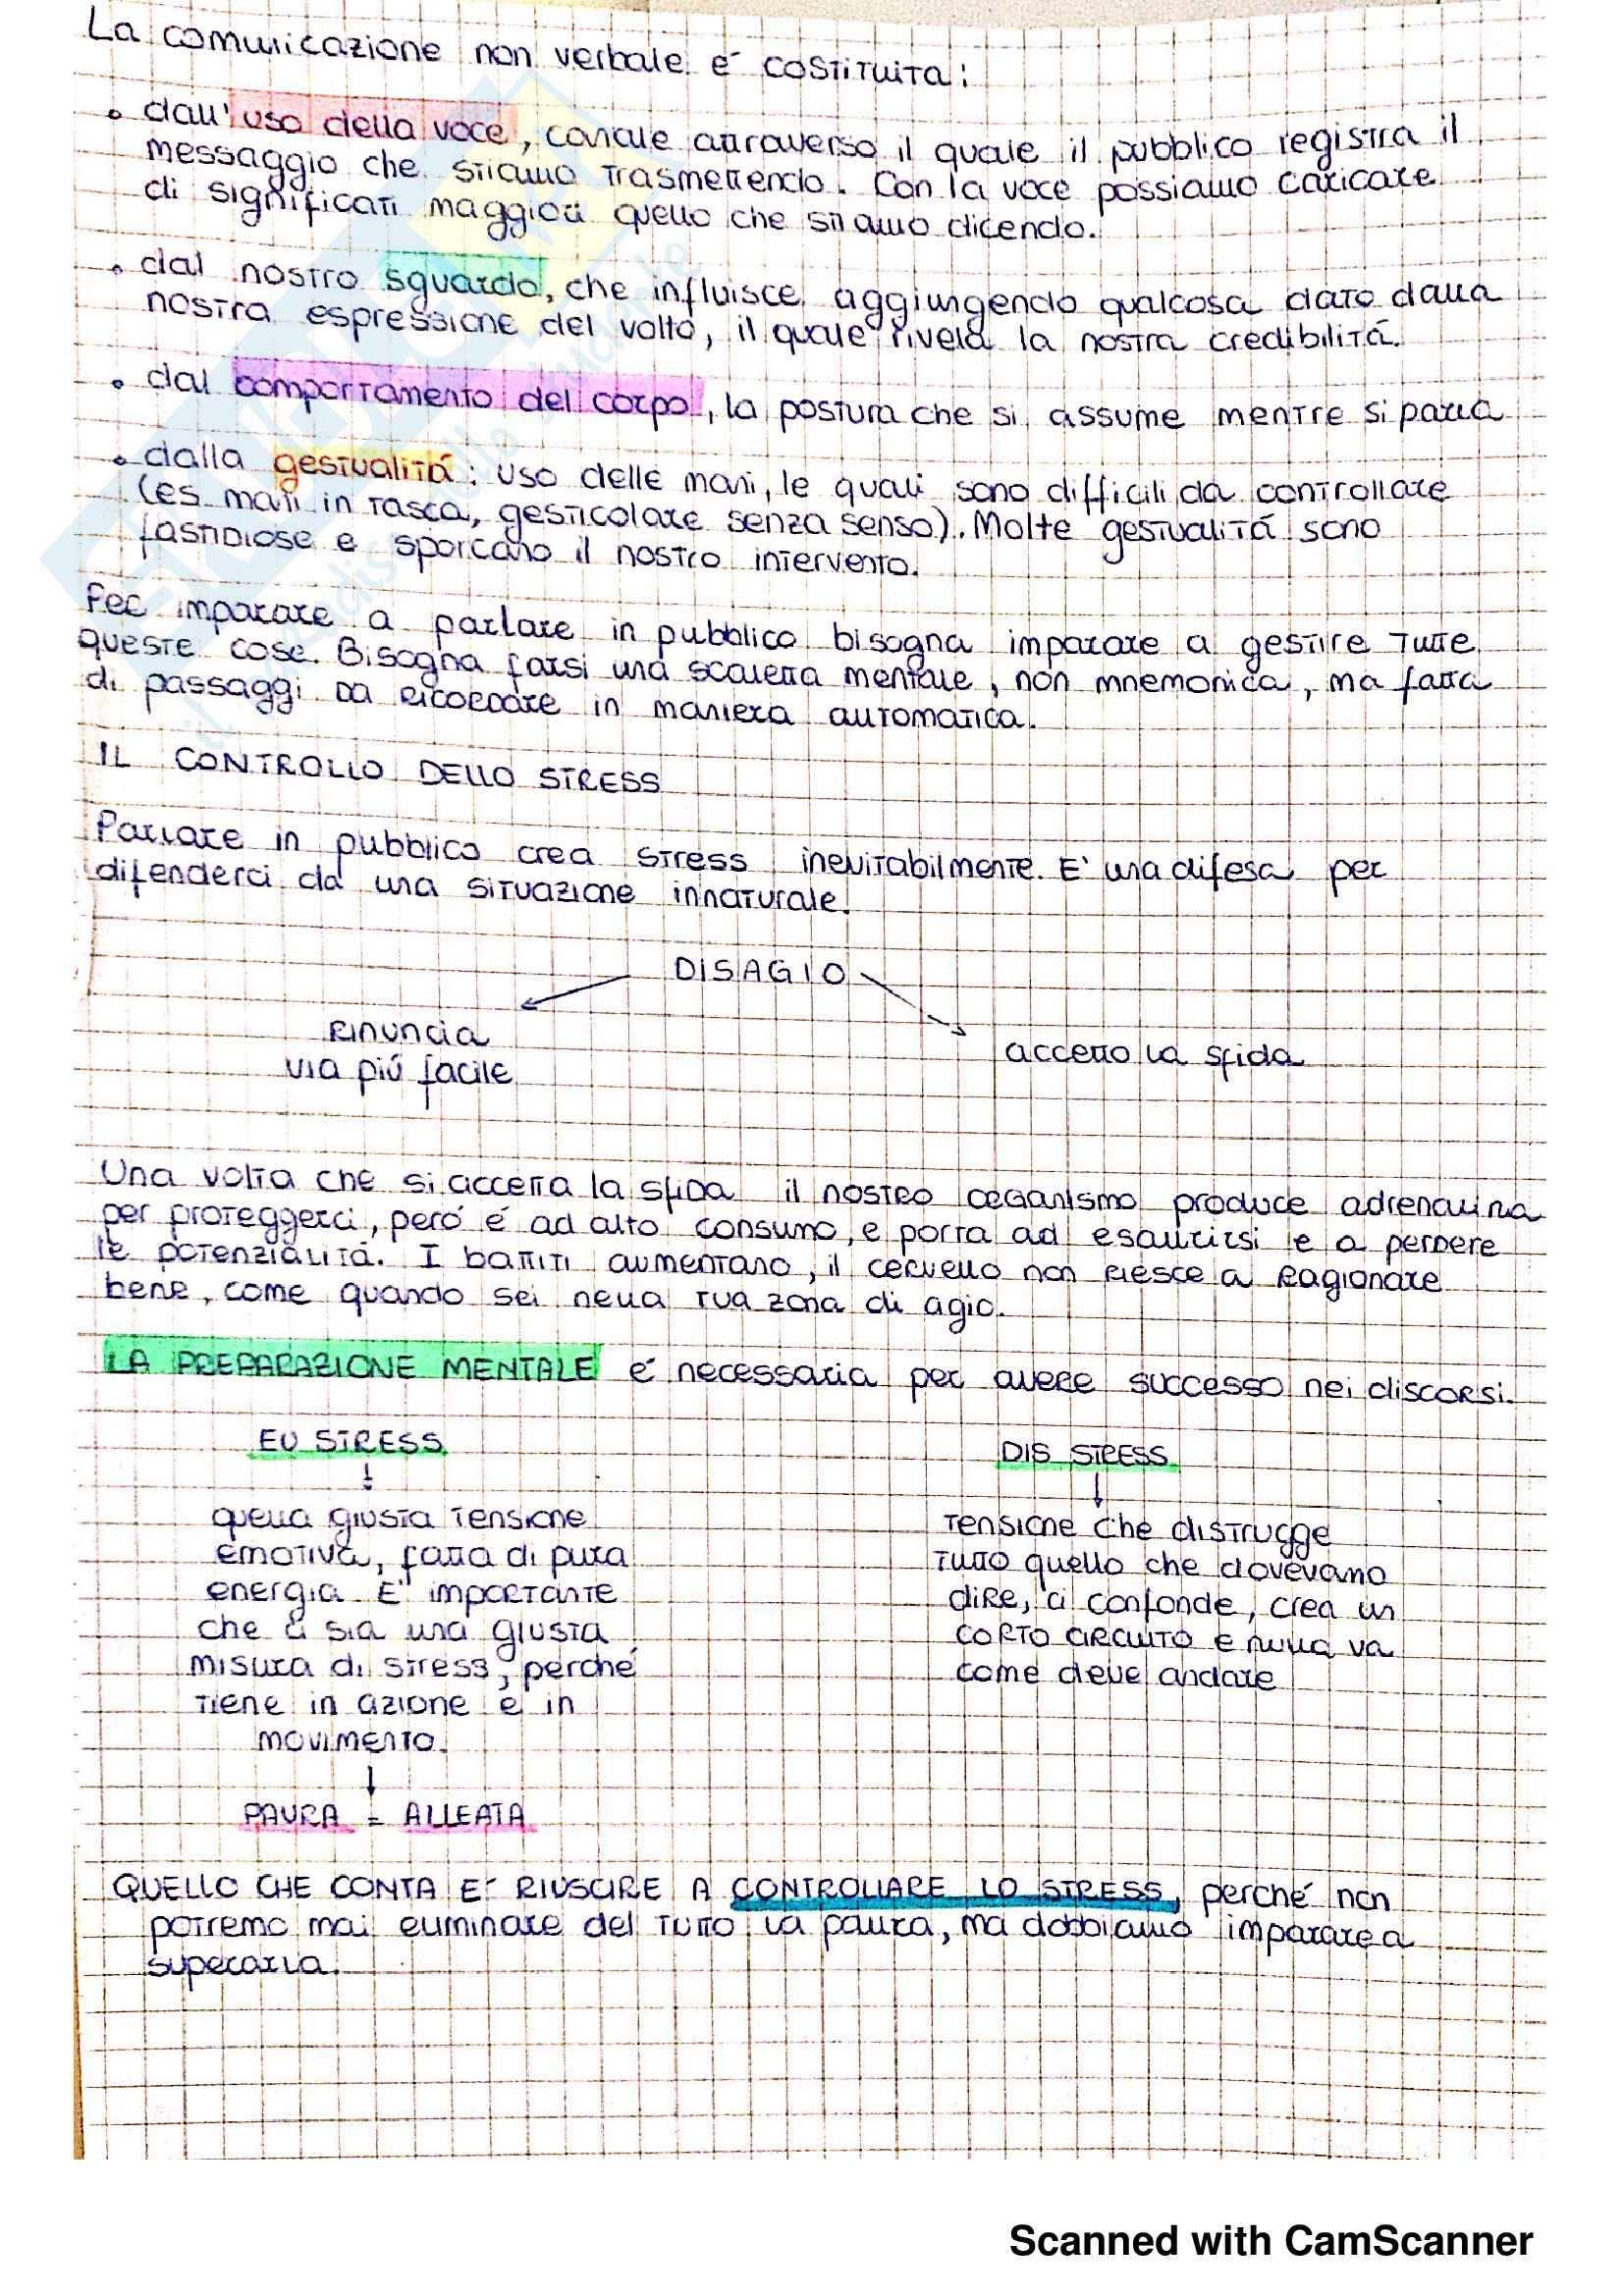 La comunicazione non verbale é costituita:
• dall'uso della voce, canale attraverso il quale il pubblico registra il
messaggio che stiamo trasmettendo. Con la voce possiamo caricare
di significati maggiori quello che stiamo dicendo.
• dal nostro sguardo, che influisce aggiungendo qualcosa dato dalla
nostra espressione del volto, il quale rivela la nostra credibilitá.
• dal comportamento del corpo, la postura che si assume mentre si parla
• dalla gestualitá: uso delle mani, le quali sono difficili da controllare
(es. mani in tasca, gesticolare senza senso). Molte gestualitá sono
fastidiose e sporcano il nostro intervento.
Per imparare a parlare in pubblico bisogna imparare a gestire tutte
queste cose. Bisogna farsi una scaletta mentale, non mnemonica, ma fatta
di passaggi da ricordare in maniera automatica.
IL CONTROLLO DELLO STRESS
Parlare in pubblico crea stress inevitabilmente. E' una difesa per
difenderci da una situazione innaturale.
DISAGIO
Rinuncia
via piú facile
accetto la sfida
Una volta che si accetta la sfida il nostro organismo produce adrenalina
per proteggerci, peró é ad alto consumo, e porta ad esaurirsi e a perdere
le potenzialitá. I battiti aumentano, il cervello non riesce a ragionare
bene, come quando sei nella tua zona di agio.
LA PREPARAZIONE MENTALE é necessaria per avere successo nei discorsi.
EU STRESS
↓
quella giusta tensione
emotiva, fatta di pura
energia. E' importante
che ci sia una giusta
misura di stress, perché
tiene in azione e in
movimento.
↓
PAURA = ALLEATA
DIS STRESS
↓
tensione che distrugge
tutto quello che dovevano
dire, ci confonde, crea un
corto circuito e nulla va
come deve andare
QUELLO CHE CONTA E' RIUSCIRE A CONTROLLARE LO STRESS, perché non
potremo mai eliminare del tutto la paura, ma dobbiamo imparare a
superarla.
Scanned with CamScanner